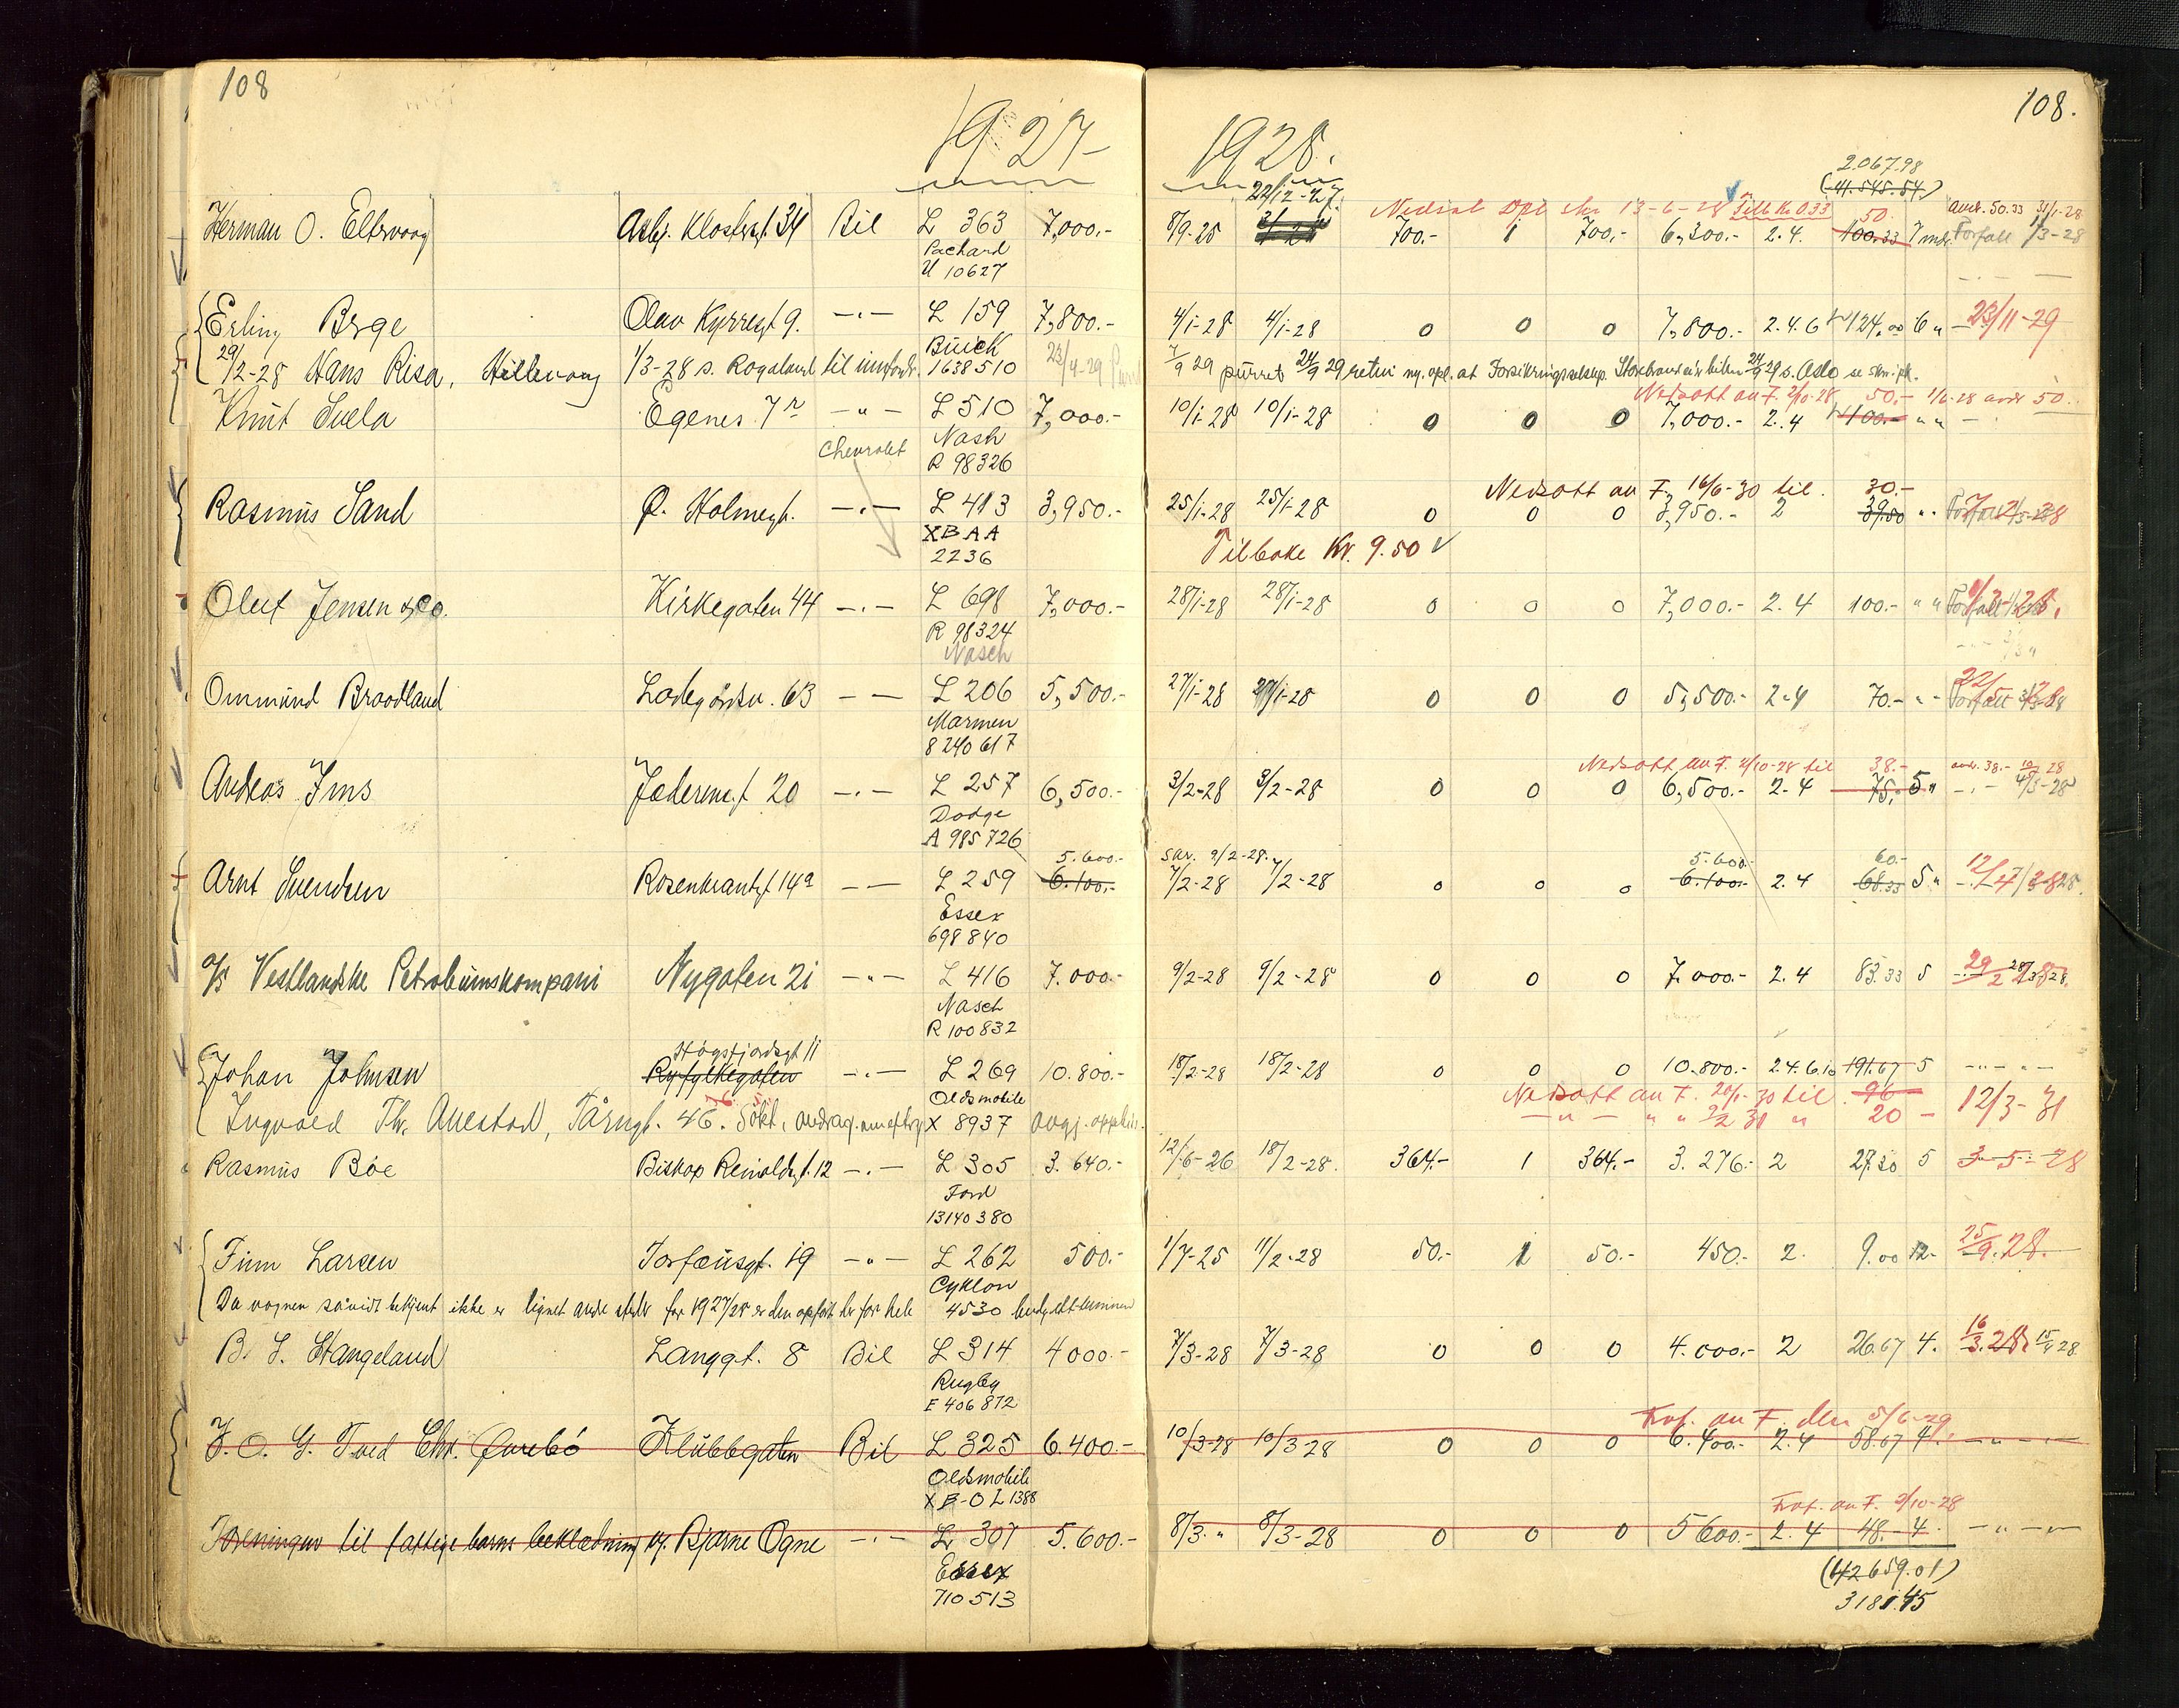 108
1927
1928.
108.
2.067.98
(41.545.54)
22/12-27.
Nedsat 13-6-28 Tilb. Kr. 0.33 50.- 50.33 31/1-28
Herman O. Eltervaag Asbj. Klostersgt. 34 Bil L 363 7,000.- 8/9-25 700.- 1 700.- 6,300.- 2.4. 100.33 7 mdr. Forfall 1/3-28
Packard
U 10627
Erling Berge Olav Kyrresgt 9. -.- L 159 7,800.- 4/1-28 4/1-28 0 0 0 7,800.- 2.4.6 124.00 6 " 23/11-29
Buick
29/2-28 Hans Risa, Hillevaag 1/3-28 s. Rogaland til innfordr. 1638510 23/4-29 7/9 29 purret 24/9 29 retur
Nedsatt av F. 2/10-28 50.- 50.-
Knut Svela Egenes 7 -"- L 510 7,000.- 10/1-28 10/1-28 0 0 0 7,000.- 2.4 100.- " " -
Nash
Chevrolet R 98326
Nedsatt av F. 16/6-30 til. 30.-
Rasmus Sand Ø. Holmegt. -.- L 413 3,950.- 25/1-28 25/1-28 0 0 0 3,950.- 2 39.50
XBAA
2236
Tilbake Kr. 9.50
Oluf Jensen & Co. Kirkegaten 44 -.- L 698 7,000.- 28/1-28 28/1-28 0 0 0 7,000.- 2.4 100.- " "
R 98324
Nasch
Ommund Braadland Ladegårdsv. 63 - - L 206 5,500.- 27/1-28 27/1-28 0 0 0 5,500.- 2.4 70.-
Marmon
8240617
Nedsatt av F. 2/10-28 til 38.-
Andreas Ims Jæderens.t 20 -.- L 257 6,500.- 3/2-28 3/2-28 0 0 0 6,500.- 2.4 75.- 5 "
Dodge
A 985726
5.600.- skr. 9/2-28. 5.600.- 60.-
Arnt Svendsen Rosenkrantzgt 14a - - L 259 6.100.- 7/2-28 7/2-28 0 0 0 6.100.- 2.4 68.33 5 "
Essex
698840
A/S Vestlandske Petroleumskompani Nygaten 21 -"- L 416 7.000.- 9/2-28 9/2-28 0 0 0 7.000.- 2.4 83.33 5
Nasch
R 100832
Høgsfjordsgt 11
Johan Johnsen Ryfylkegaten -.- L 269 10.800.- 18/2-28 18/2-28 0 0 0 10.800.- 2.4.6.10 191.67 5
Oldsmobile
Nedsatt av F. 20/1-30 til. 96
Ingvald Th. Auestad, Tårngt. 46. X 8937 20 - 12/3-31
Rasmus Bøe Biskop Reinaldsgt. 12 -.- L 305 3.640.- 12/6-26 18/2-28. 364.- 1 364.- 3.276.- 2 27.30 5 3-5-28
Ford
13140380
Finn Larsen Torfæusgt. 19 -"- L 262 500.- 1/7-25 11/2-28 50.- 1 50.- 450.- 2. 9.00 12- 25/9.28.
Cyklon
Da vognen såvidt bekjent ikke er lignet andre steder for 1927/28 er den opført her for hele 4530
B. S. Stangeland Langgt. 8 Bil L 314 4000.- 7/3-28 7/3-28 0 0 0 4.000.- 2 26.67 4. 16/3.28
Rugby
F 406872
av F. den 5/6-29.
J. O. G. Tved Chr. Qvrebø Klubbgaten Bil L 325 6.400.- 10/3-28 10/3-28 0 0 0 6.400.- 2.4 58.67 4. -"-
Oldsmobile
XB-OL1388
av F. 2/10-28
Foreningen til fattige barns beklædning v. Bjarne Ogne -.- L 307 5.600.- 8/3. " 8/3-28 0 0 0 5600.- 2.4 48.- 4. -"-
Essex
710513
(42659.01)
3181.45